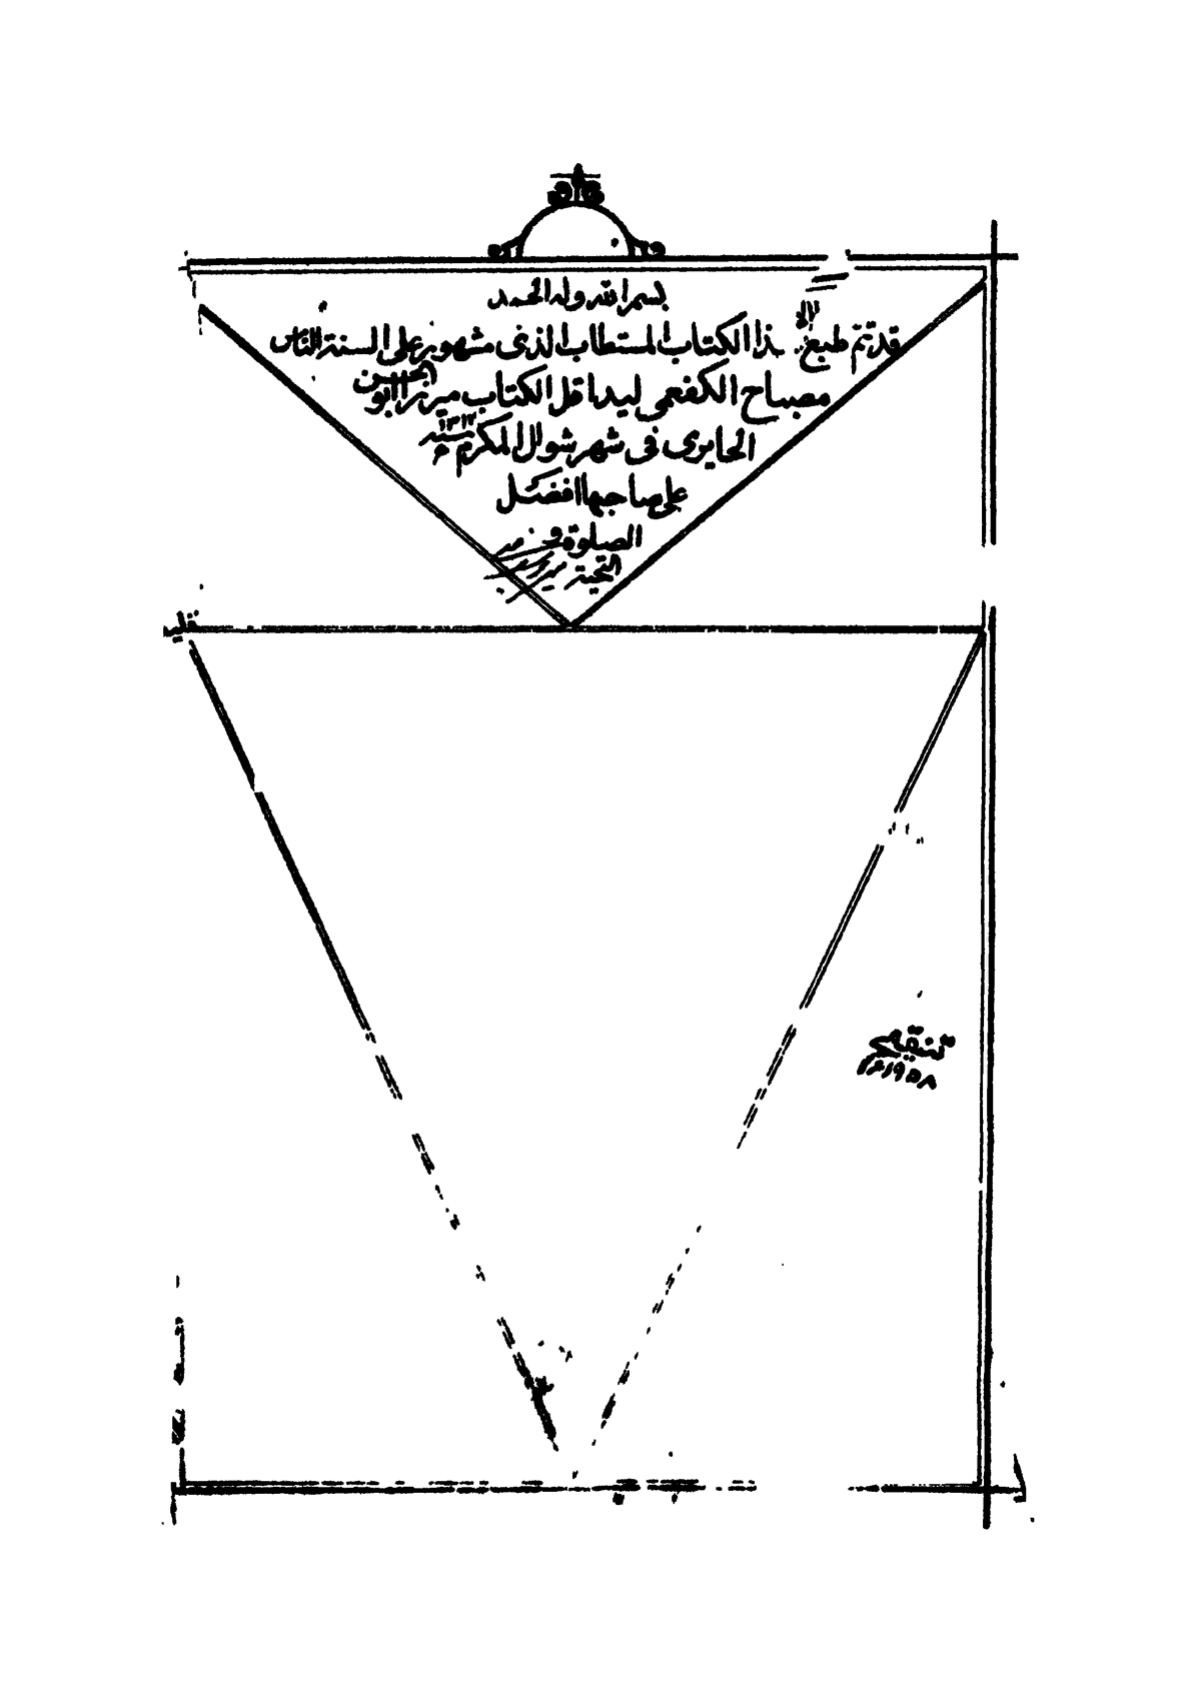 بسم الله وله الحمد
قد تم طبع هذا الكتاب المستطاب الذى مشهور على السنة الناس
مصباح الكفعمى ليد اقل الكتاب ميرزا ابو الحسن
الحايرى فى شهر شوال المكرم سنه ١٣١٢
على صاحبها افضل
الصلوة و
التحية